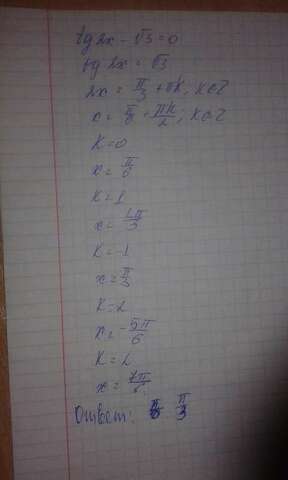 tg 2x - √3 = 0
tg 2x = √3
2x = π/3 + πk, k∈Z
x = π/6 + πk/2; k∈Z
k=0
x = π/6
k=1
x = 2π/3
k=-1
x = π/3
k=2
x = -5π/6
k=2
x = 7π/6.
Ответ: π/6 π/3